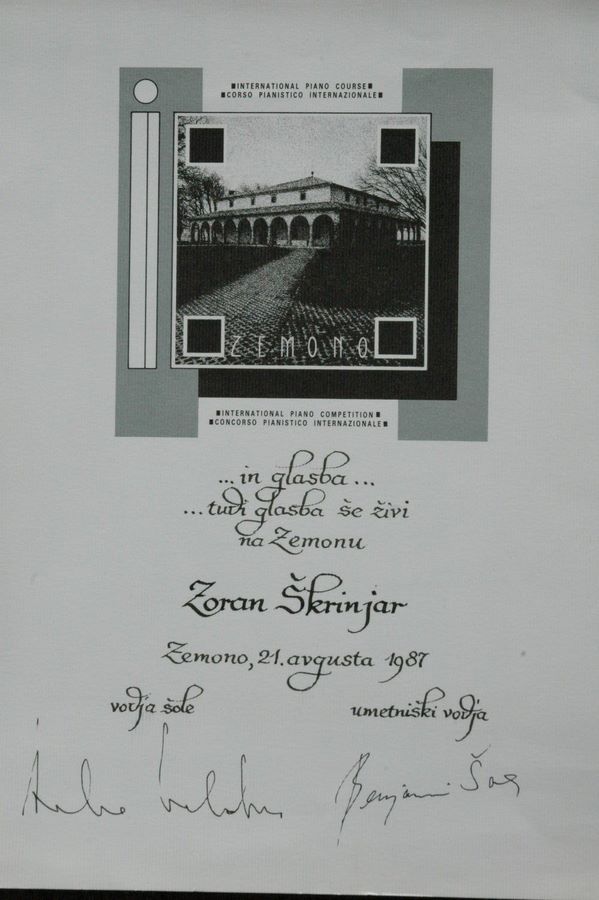 INTERNATIONAL PIANO COURSE
CORSO PIANISTICO INTERNAZIONALE
ZEMONO
INTERNATIONAL PIANO COMPETITION
CONCORSO PIANISTICO INTERNAZIONALE
...in glasba...
...tudi glasba še živi
na Zemonu
Zoran Škrinjar
Zemono, 21. avgusta 1987
vodja šole
umetniški vodja
Benjamin